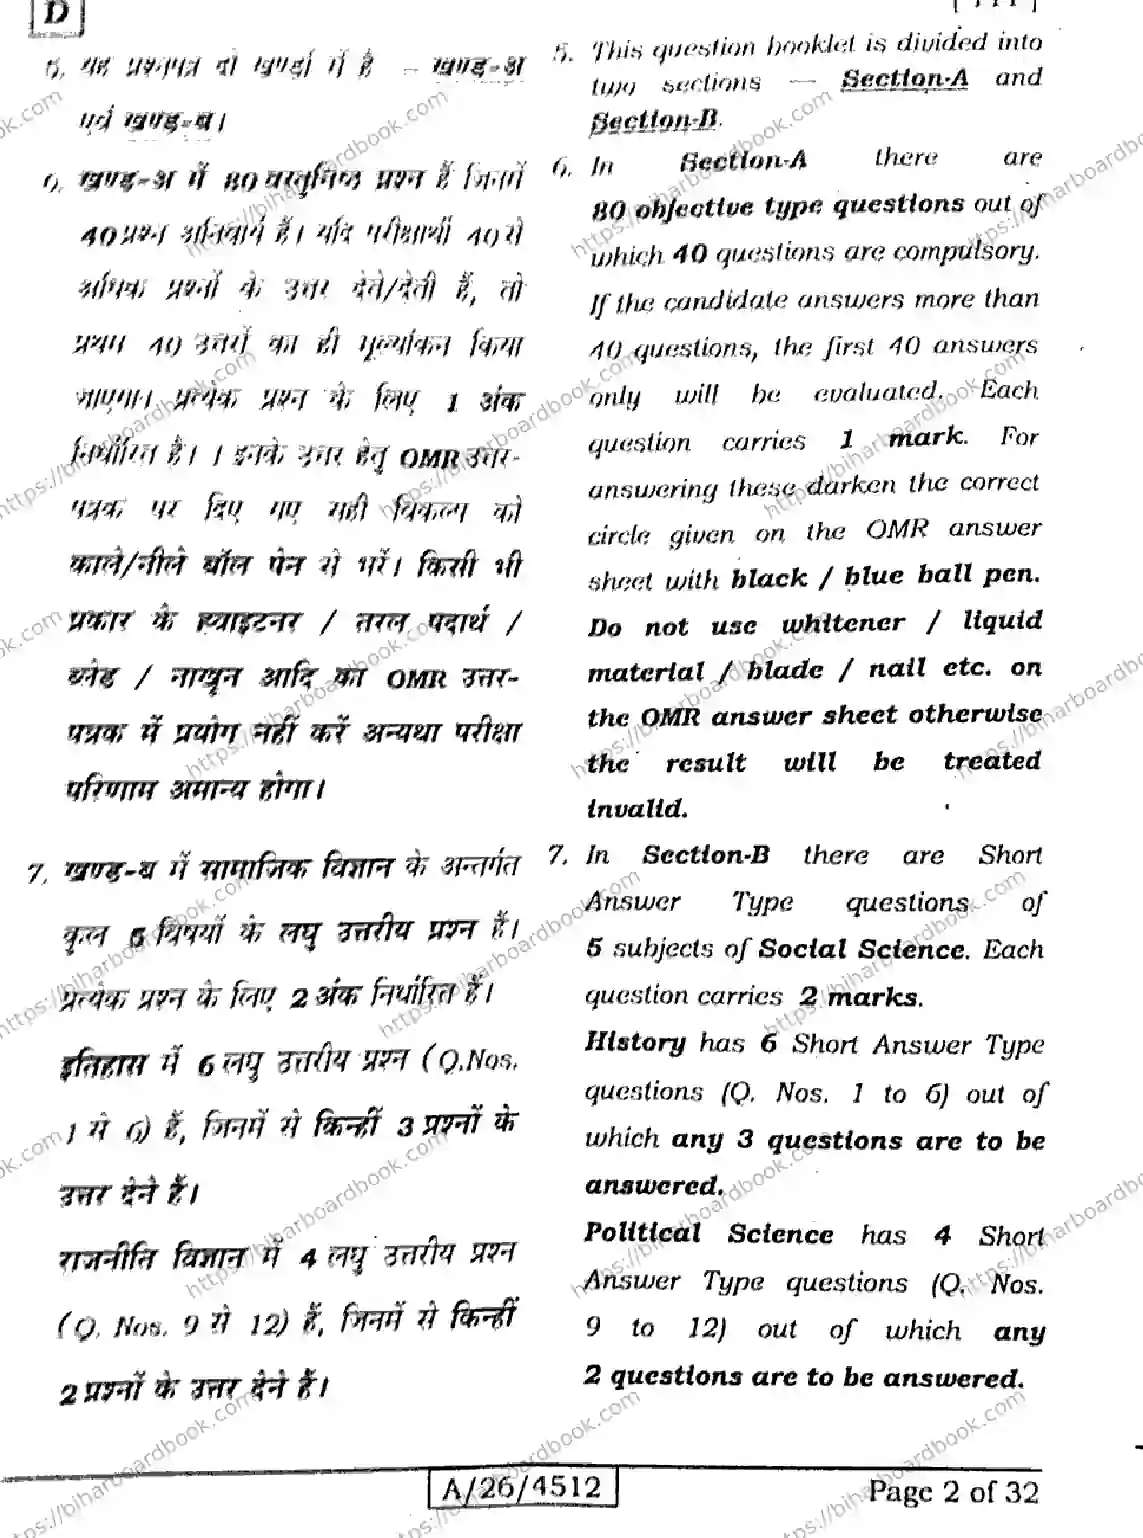 D
[ 111 ]
5. यह प्रश्नपत्र दो खण्डों में है – खण्ड-अ
एवं खण्ड-ब।
6. खण्ड-अ में 80 वस्तुनिष्ठ प्रश्न हैं जिनमें
40 प्रश्न अनिवार्य हैं। यदि परीक्षार्थी 40 से
अधिक प्रश्नों के उत्तर देते/देती हैं, तो
प्रथम 40 उत्तरों का ही मूल्यांकन किया
जाएगा। प्रत्येक प्रश्न के लिए 1 अंक
निर्धारित है। । इनके उत्तर हेतु OMR उत्तर-
पत्रक पर दिए गए सही विकल्प को
काले/नीले बॉल पेन से भरें। किसी भी
प्रकार के ह्वाइटनर / तरल पदार्थ /
ब्लेड / नाखून आदि का OMR उत्तर-
पत्रक में प्रयोग नहीं करें अन्यथा परीक्षा
परिणाम अमान्य होगा।
7. खण्ड-ब में सामाजिक विज्ञान के अन्तर्गत
कुल 5 विषयों के लघु उत्तरीय प्रश्न हैं।
प्रत्येक प्रश्न के लिए 2 अंक निर्धारित हैं।
इतिहास में 6 लघु उत्तरीय प्रश्न (Q.Nos.
1 से 6) हैं, जिनमें से किन्हीं 3 प्रश्नों के
उत्तर देने हैं।
राजनीति विज्ञान में 4 लघु उत्तरीय प्रश्न
(Q. Nos. 9 से 12) हैं, जिनमें से किन्हीं
2 प्रश्नों के उत्तर देने हैं।
5. This question booklet is divided into
two sections — Section-A and
Section-B.
6. In Section-A there are
80 objective type questions out of
which 40 questions are compulsory.
If the candidate answers more than
40 questions, the first 40 answers
only will be evaluated. Each
question carries 1 mark. For
answering these darken the correct
circle given on the OMR answer
sheet with black / blue ball pen.
Do not use whitener / liquid
material / blade / nail etc. on
the OMR answer sheet otherwise
the result will be treated
invalid.
7. In Section-B there are Short
Answer Type questions of
5 subjects of Social Science. Each
question carries 2 marks.
History has 6 Short Answer Type
questions (Q. Nos. 1 to 6) out of
which any 3 questions are to be
answered.
Political Science has 4 Short
Answer Type questions (Q. Nos.
9 to 12) out of which any
2 questions are to be answered.
A/26/4512
Page 2 of 32
https://biharboardbook.com